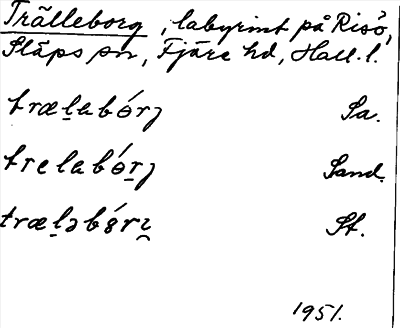 Trälleborg, labyrint på Risö,
Släps sn, Fjäre hd, Hall. l.
træḻabǿrȷ Sa.
trelabɵ́ṟȷ Sand.
træḻəbǿrı̯ St.
1951.